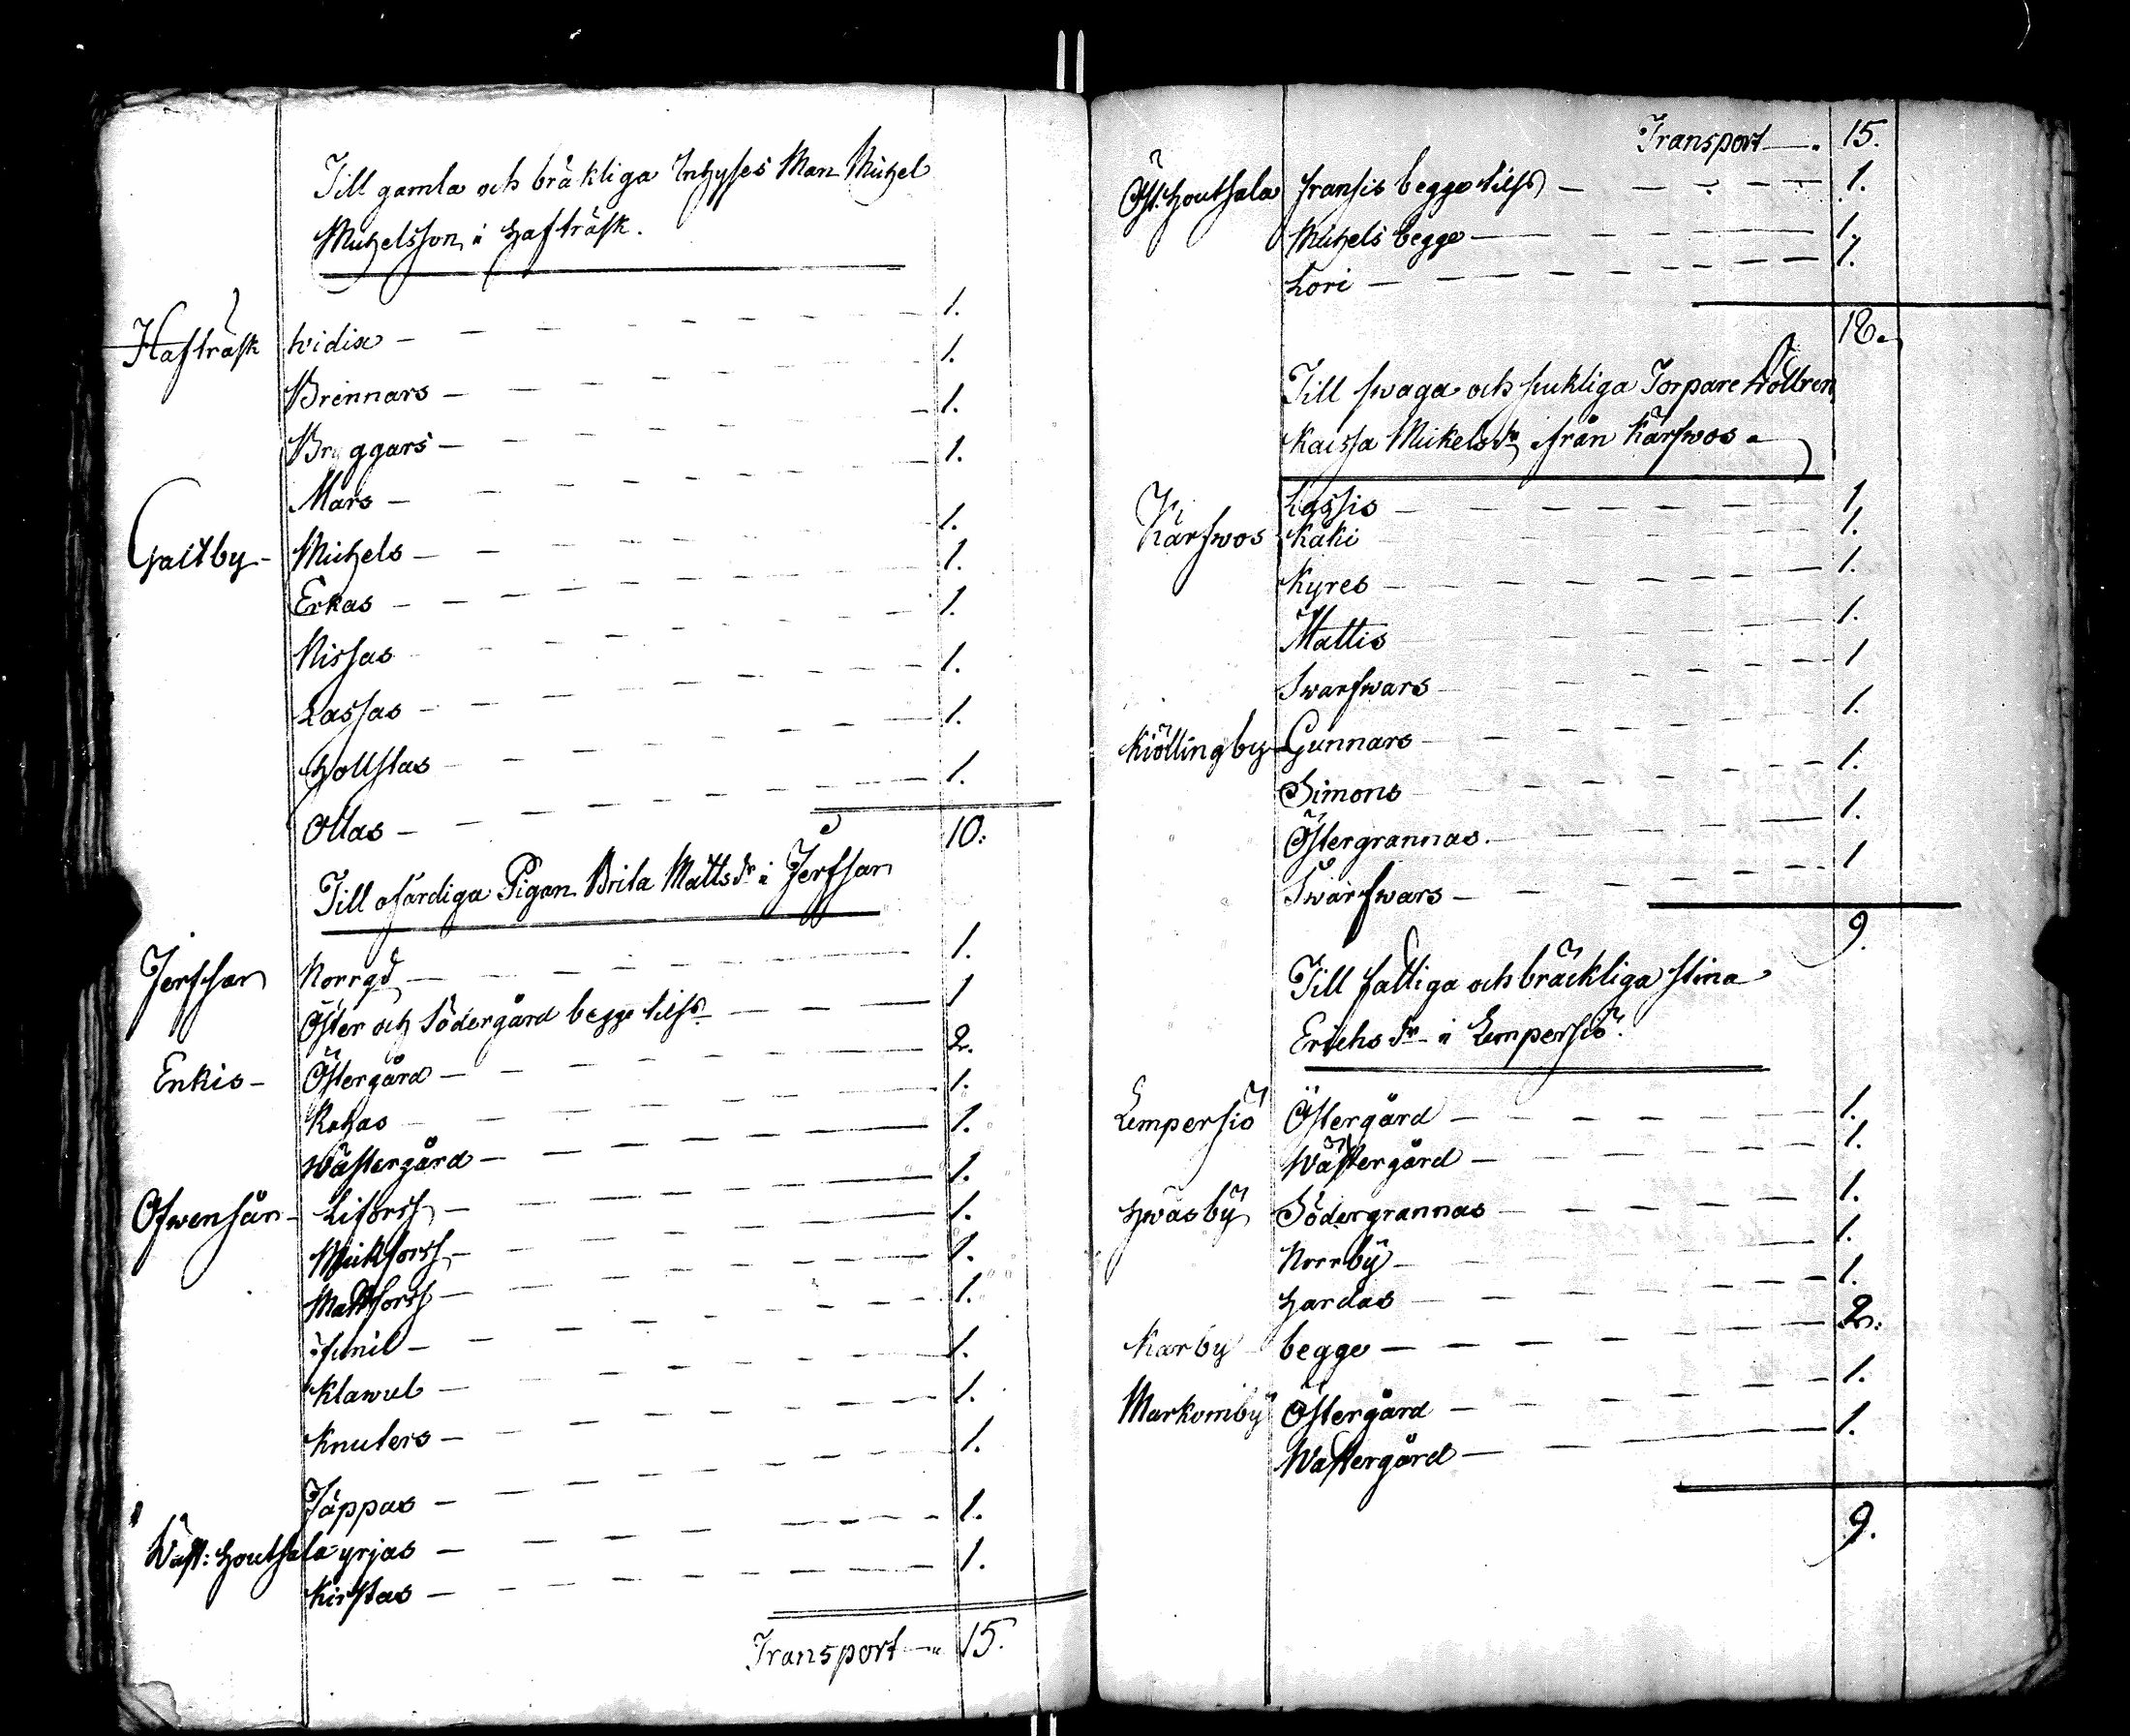 Till gamla och bräkliga Inhyses Man Michel
Michelsson i Hafträsk.
Hafträsk Widix — 1.
Brennars — 1.
Bryggars — 1.
Mårs — 1.
Galtby — Michels — 1.
Erkas — 1.
Nissas 1.
Lassas — 1.
Hollstas — 1.
Ollas — 1.
10.
Till ofärdiga Pigan Brita Mattsdr i Jerfsar
Jerfsar Norrgd — 1.
Öster och Södergård begge tills — 1
Enkis — Östergård — 2.
Rohas 1.
Wästergård — 1.
Ofwensår — Liforss — 1.
Mickforss — 1.
Mattforss — 1.
1.
Klawul — 1.
Knuters — 1.
Jäppas — 1.
Wäst: Houtsala yrjas — 1.
Kirstas — 1.
Transport — 15.
Transport — 15.
Öst. Houtsala fransis begge tills — 1.
Michels begge — 1.
Lori — 1.
18.
Till swaga och siukliga Torpare
Kaissa Mickelsdr från Kärfwos
Kärfwos Lassis — 1.
Kaki 1.
Kyres — 1.
Mattis 1.
Swarfwars 1
Kiöllingby — Gunnars — 1.
Simons 1.
Östergrannas. 1.
Swarfwars — 1
9.
Till fattiga och bräckliga Stina
Erichsdr i Lempersiö.
Lempersiö Östergård — 1.
Wästergård — 1.
Hwäsby Södergrannas — 1.
Norrby — 1.
Hardas 1.
Karby begge — 2.
Markomby Östergård — 1.
Wästergård — 1.
9.